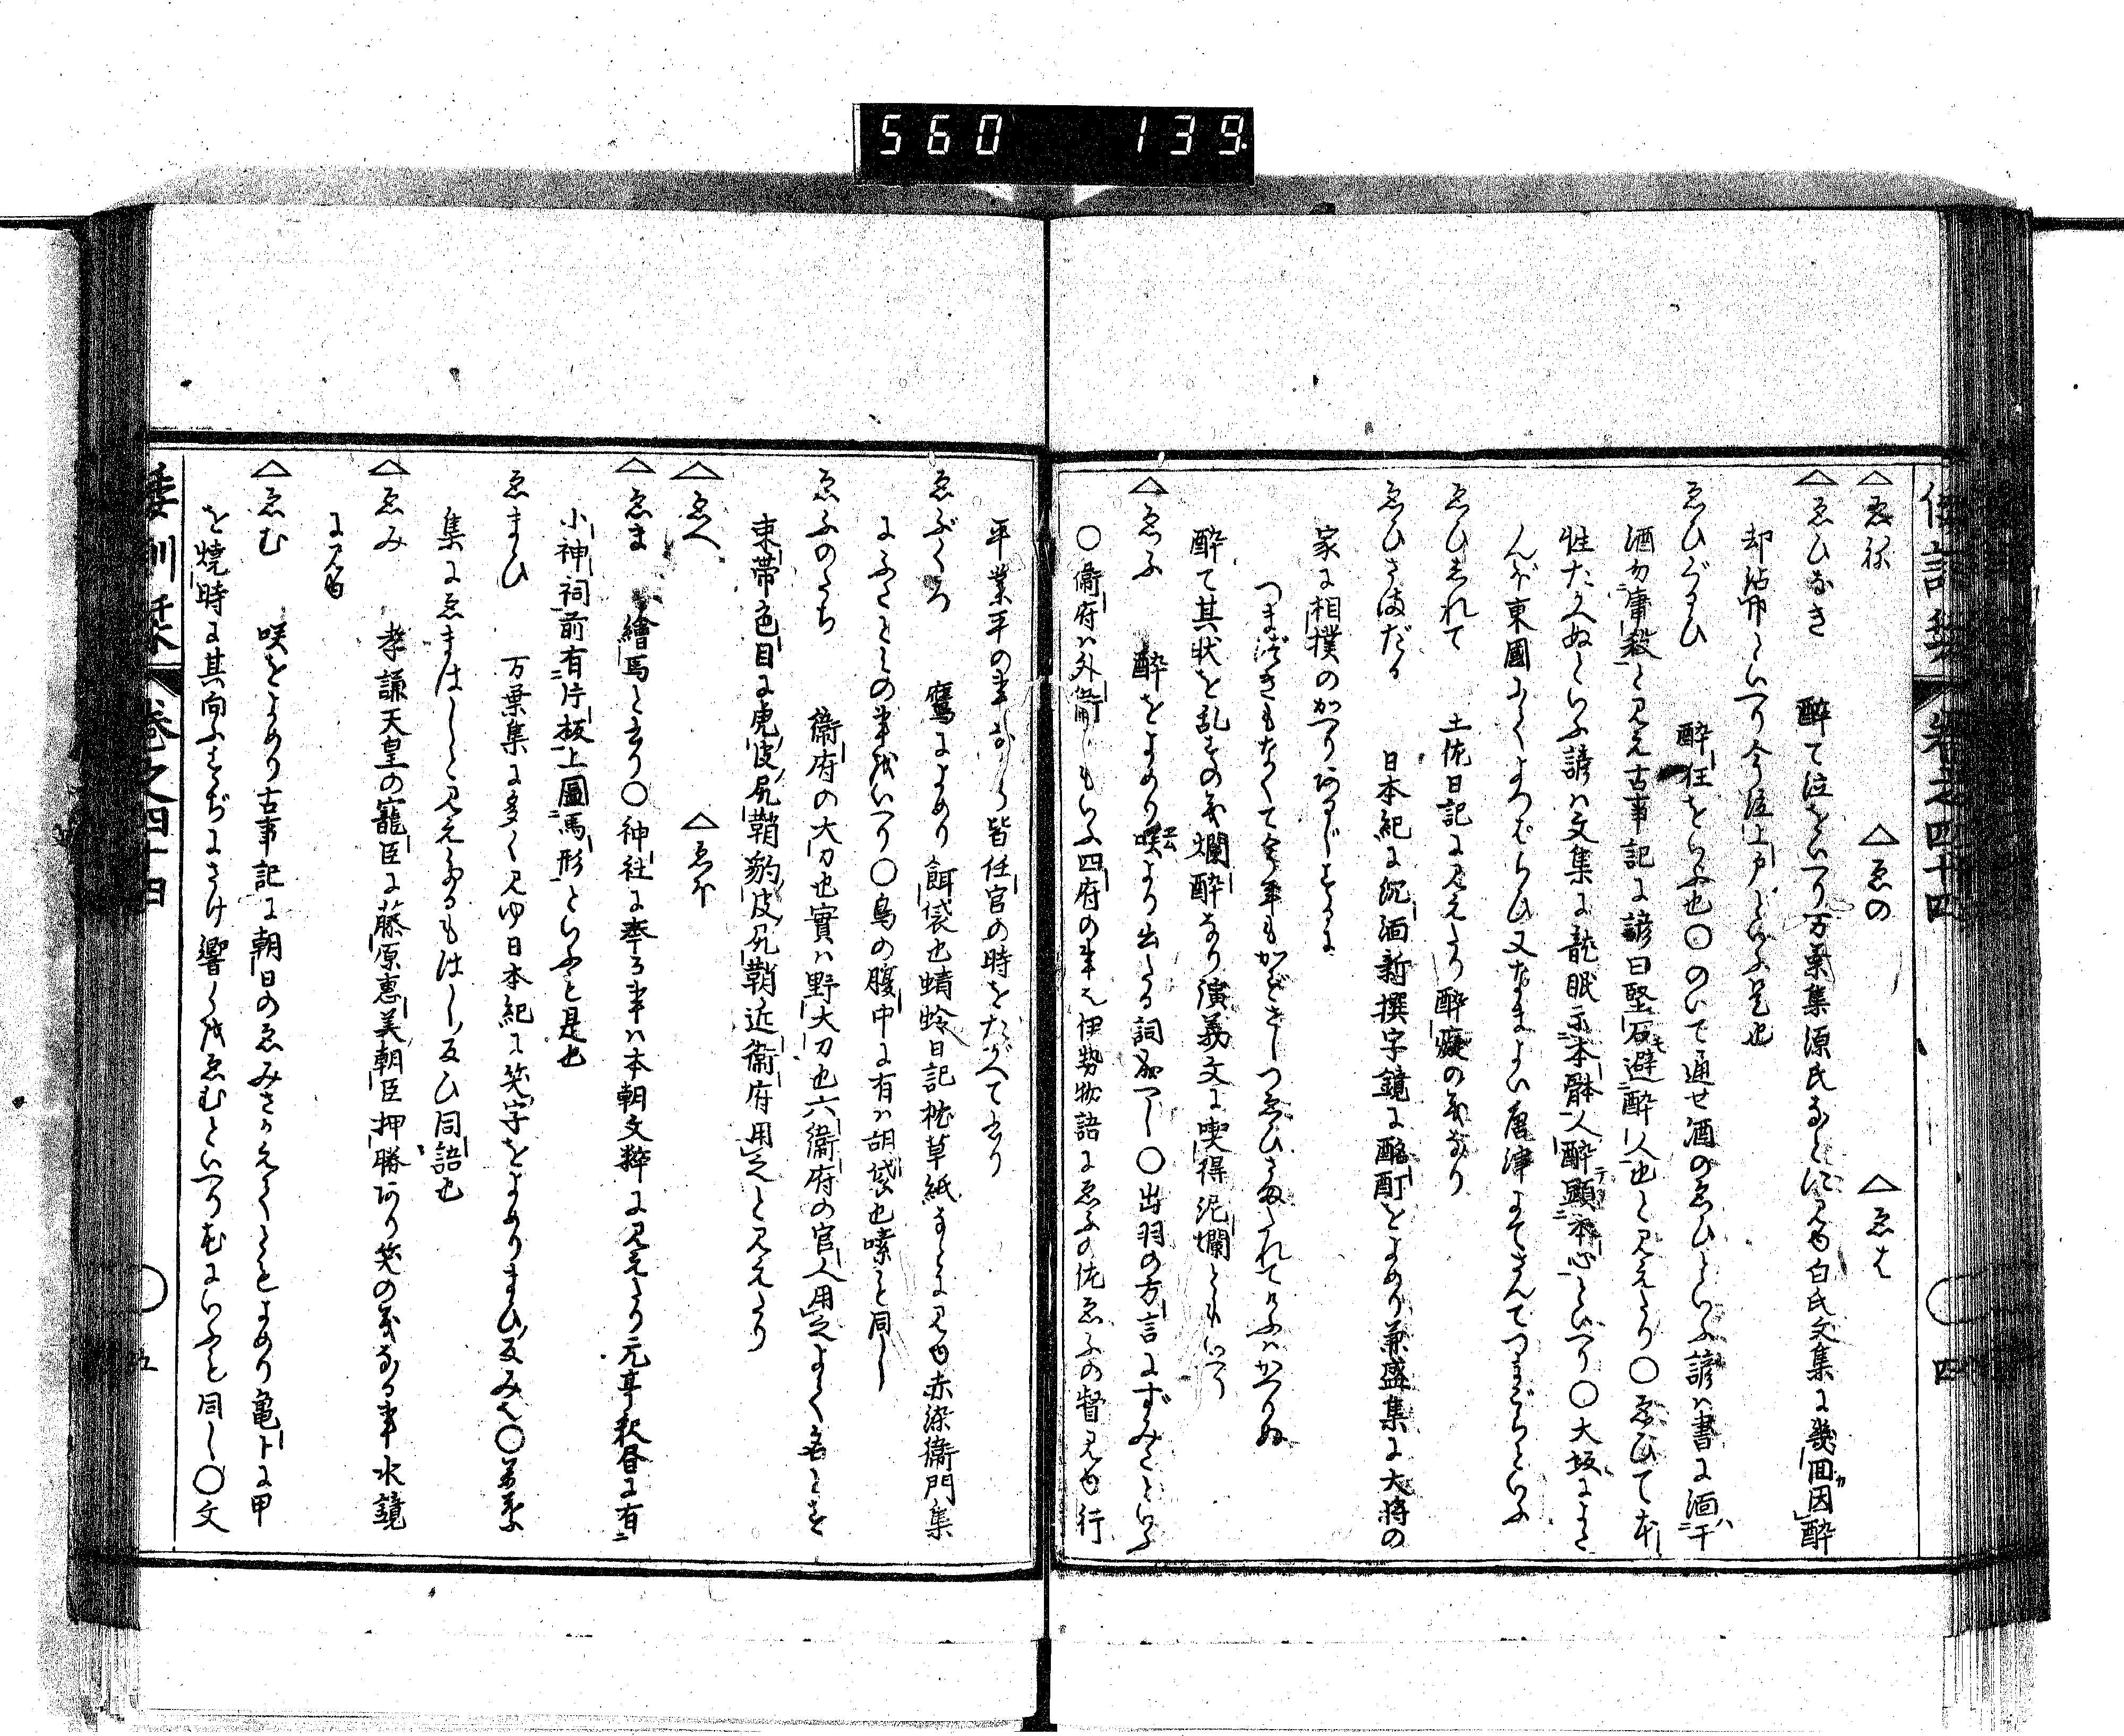 560 139
倭訓栞 卷之四十四 四
△ゑね △ゑの △ゑは
△ゑひなき 醉て泣をいへり万葉集源氏なとに見ゆ白氏文集に幾回因醉
却沾巾といへり今泣上戸といふ是也
ゑひぐるひ 醉狂をいふ也〇のいて通せ酒のゑひといふ諺は書に湎于
酒勿庸殺と見え古事記に諺曰堅石避醉人也と見えたり〇ゑひて本
性たかへぬといふ諺は文集に龍眠示本躰人醉顕本心といへり〇大坂によた
んぼ東國にてよつぱらひ又なまよい唐津にてさんてつまごらといふ
ゑひしれて 土佐日記に見えたり醉癡の義なり
ゑひさまだる 日本紀に沉湎新撰字鏡に酩酊をよめり兼盛集に大将の
家に相撲のかへりあるじするに
つまづきもなくて今年もかどさしつゑひさまたれてけふはかへりぬ
醉て其状を乱すの義爛醉なり演義文に喫得泥爛ともいへり
△ゑふ 醉をよめり咲より出たる詞なるへし〇出羽の方言にずみこといふ
〇衞府は外衞ともいふ四府の事也伊勢物語にゑふの佐ゑふの督見ゆ行
平業平の事なから皆任官の時をたがへていへり
ゑぶくろ 鷹によめり餌袋也蜻蛉日記枕草紙なとに見ゆ赤染衞門集
にふることの事をいへり〇鳥の腹中に有は胡袋也嗉と同し
ゑふのたち 衞府の大刀也實は野大刀也六衞府の官人用之よて名とす
束帯色目に虎皮尻鞘豹皮尻鞘近衞府用之と見えたり
△ゑへ △ゑほ
△ゑま 繪馬と書り〇神社に奉る事は本朝文粹に見えたり元亨釈書に有
小神祠前有片板上圖馬形といふも是也
ゑまひ 万葉集に多く見ゆ日本紀に笑字をよめりまひ反み也〇万葉
集にゑまはしと見えたるもはし反ひ同語也
△ゑみ 孝謙天皇の寵臣に藤原惠美朝臣押勝あり笑の義なる事水鏡
に見ゆ
△ゑむ 咲をよめり古事記に朝日のゑみさかえてともよめり亀卜に甲
を燒時に其向ふすぢにさけ響くをゑむといへりむにいふと同し〇文
倭訓栞 卷之四十四 五